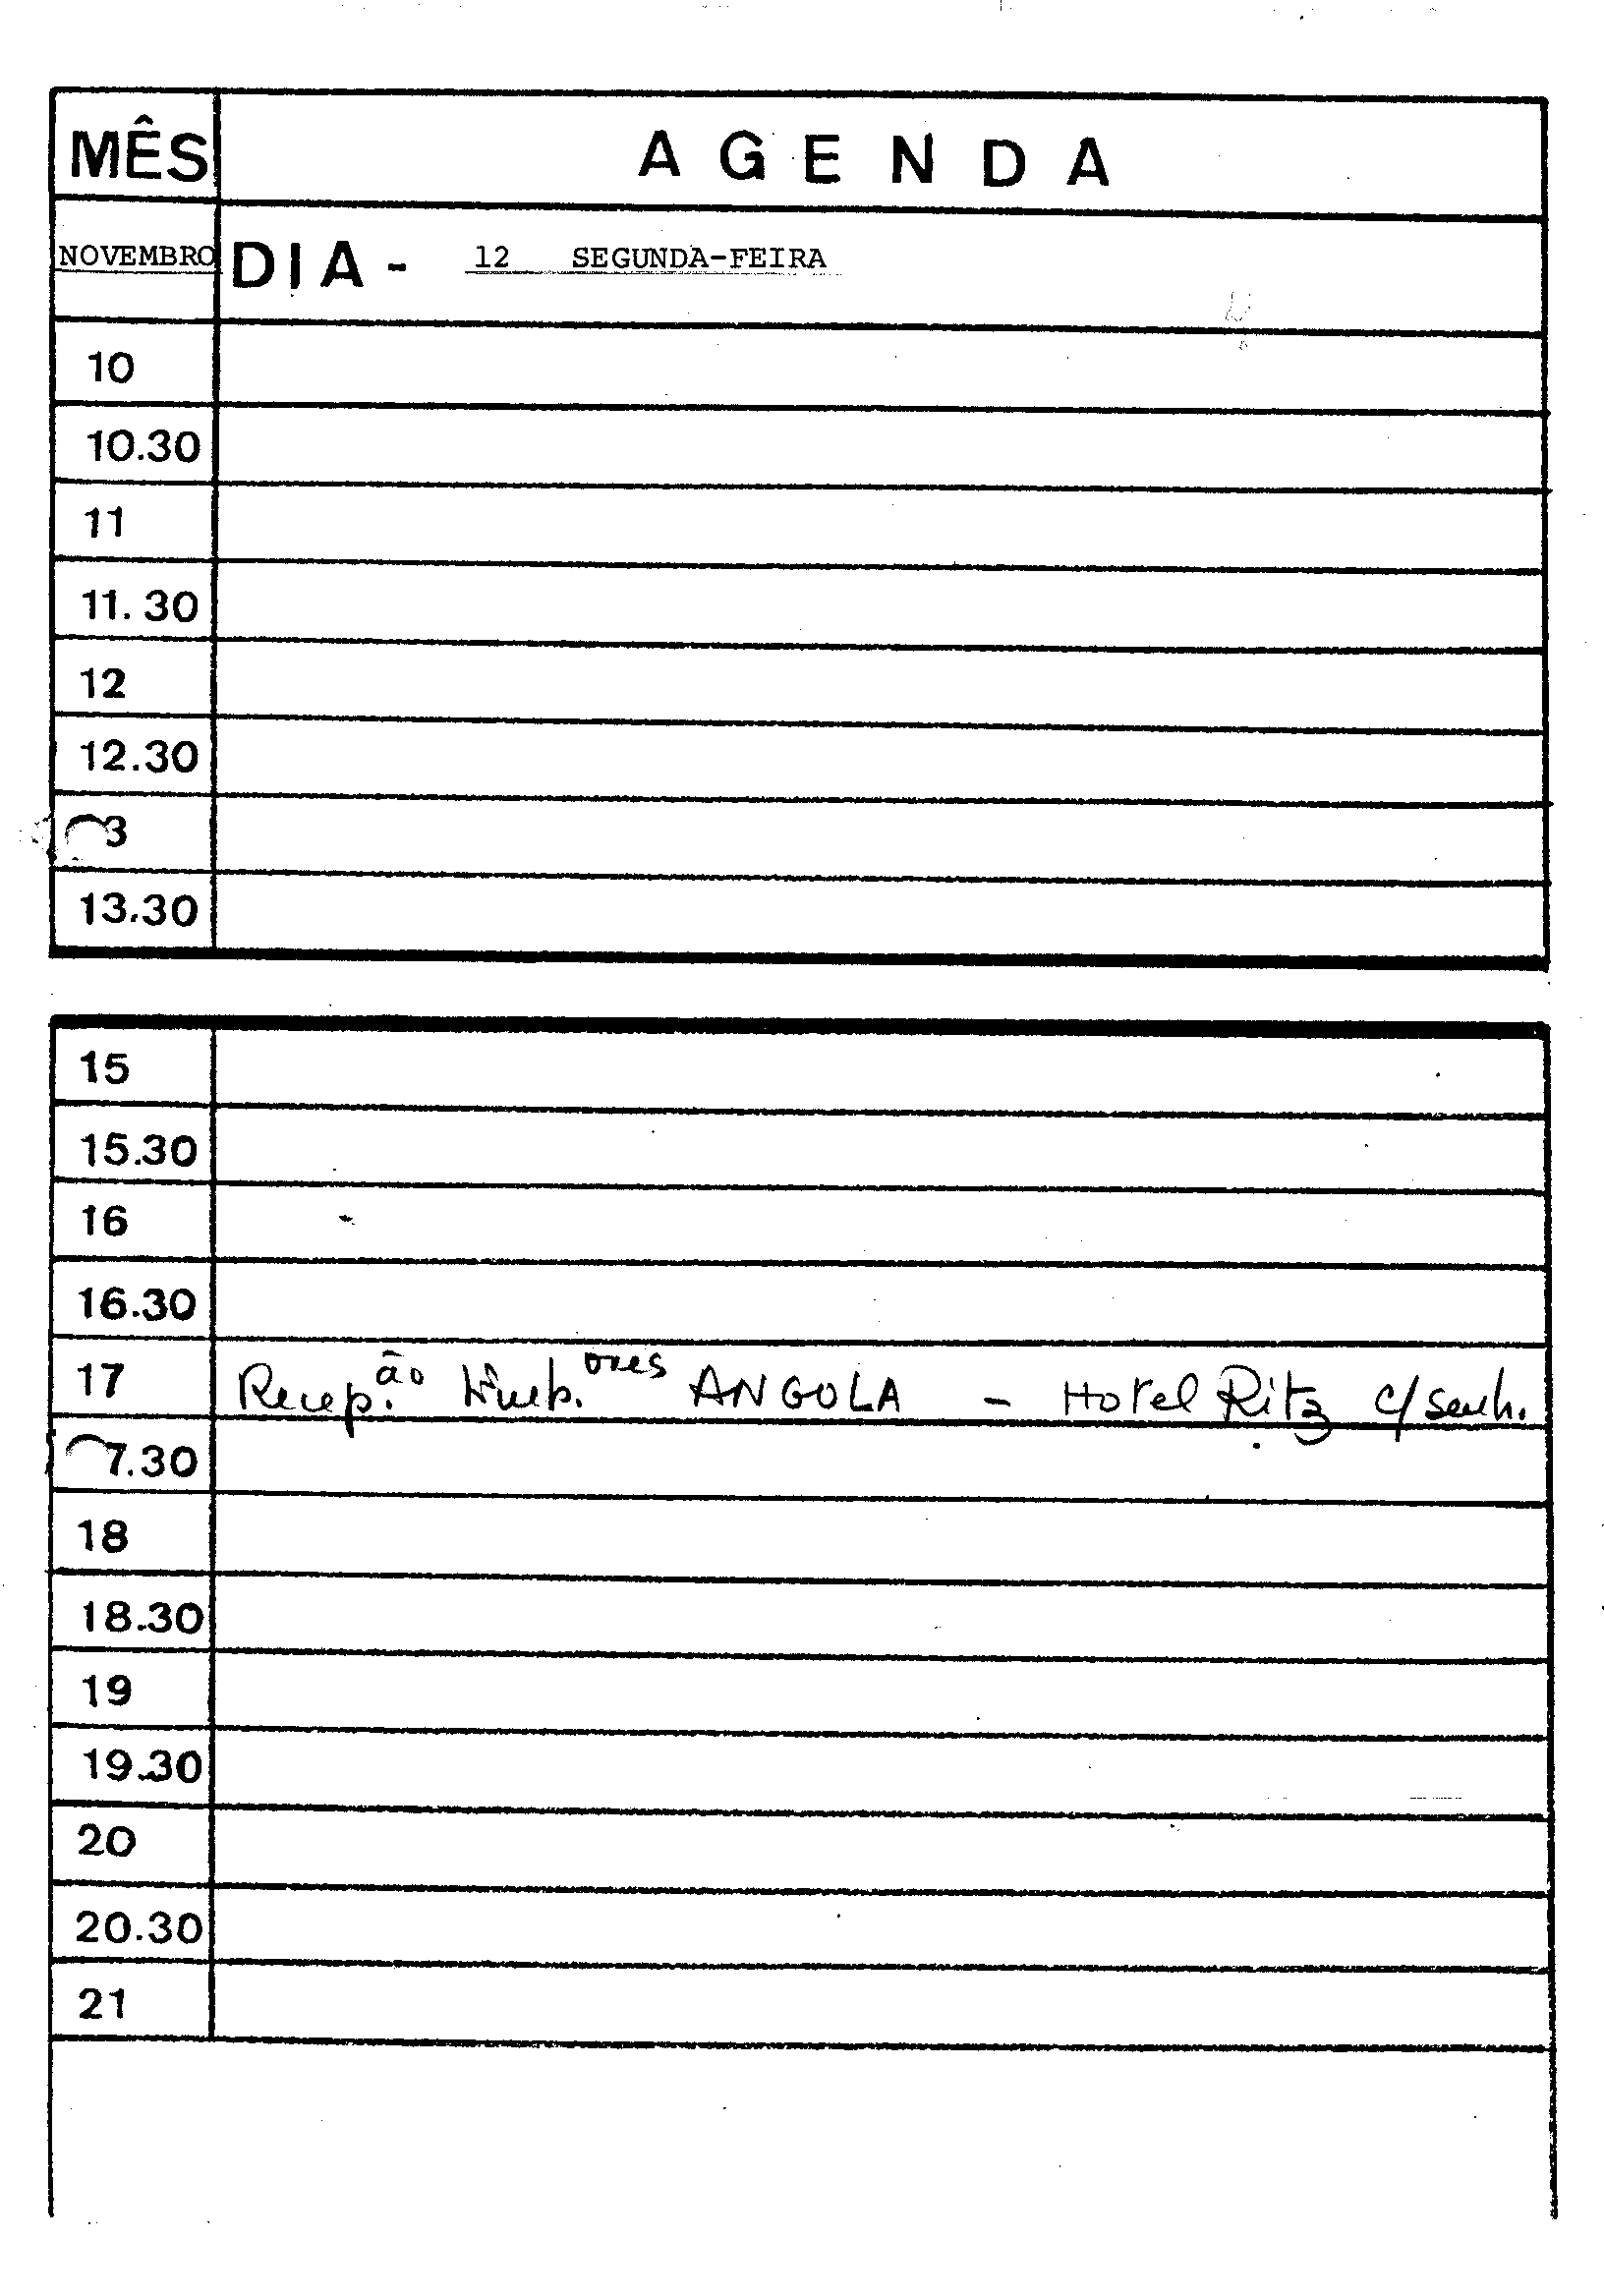 MÊS AGENDA
NOVEMBRO DIA - 12 SEGUNDA-FEIRA
10
10.30
11
11.30
12
12.30
3
13.30
15
15.30
16
16.30
17 Recep.ão ANGOLA - Hotel Ritz c/ senh.
7.30
18
18.30
19
19.30
20
20.30
21